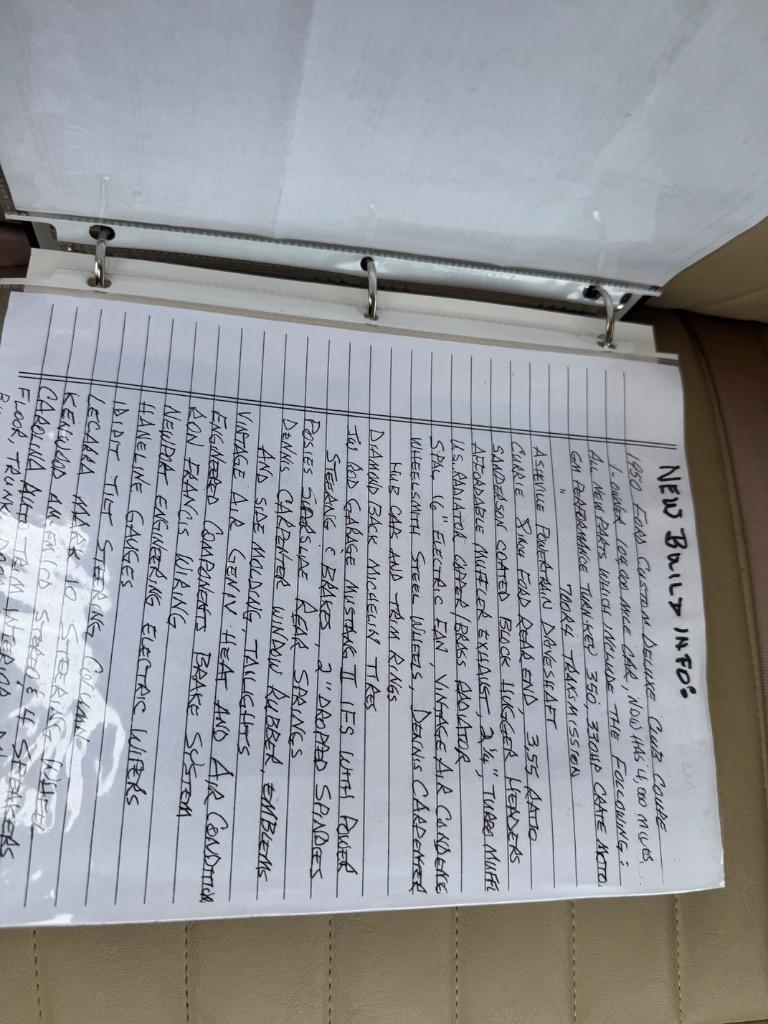 NEW BUILD INFO:
1950 FORD CUSTOM DELUXE CLUB COUPE
1 OWNER 104,000 MILE CAR, NOW HAS 4,000 MILES,
ALL NEW PARTS WHICH INCLUDE THE FOLLOWING:
GM PERFORMANCE TURNKEY 350, 330HP CRATE MOTO
" 700R4 TRANSMISSION
ASHEVILLE POWERTRAIN DRIVESHAFT
CURRIE 9 INCH FORD REAR END, 3.55 RATIO
SANDERSON COATED BLOCK HUGGER HEADERS
AFFORDABLE MUFFLER EXHAUST, 2 1/4", TURBO MUFFL
U.S. RADIATOR COPPER/BRASS RADIATOR
SPAL 16" ELECTRIC FAN, VINTAGE AIR CONDENSE
WHEELSMITH STEEL WHEELS, DENNIS CARPENTER
HUB CAP AND TRIM RINGS
DIAMOND BACK MICHELIN TIRES
ROD GARAGE MUSTANG II IFS WITH POWER
STEERING & BRAKES, 2" DROPPED SPINDLES
POSIES SUPERSLIDE REAR SPRINGS
DENNIS CARPENTER WINDOW RUBBER, EMBLEMS
AND SIDE MOLDING, TAILIGHTS
VINTAGE AIR GEN IV HEAT AND AIR CONDITION
ENGINEERED COMPONENTS BRAKE SYSTEM
RON FRANCIS WIRING
NEWPORT ENGINEERING ELECTRIC WIPERS
HANELINE GAUGES
IDIDIT TILT STEERING COLUMN
LECARRA MARK 10 STEERING WHEEL
KENWOOD STEREO & 4 SPEAKERS
CAROLINA AUTO TRIM INTERIOR
FLOOR, TRUNK